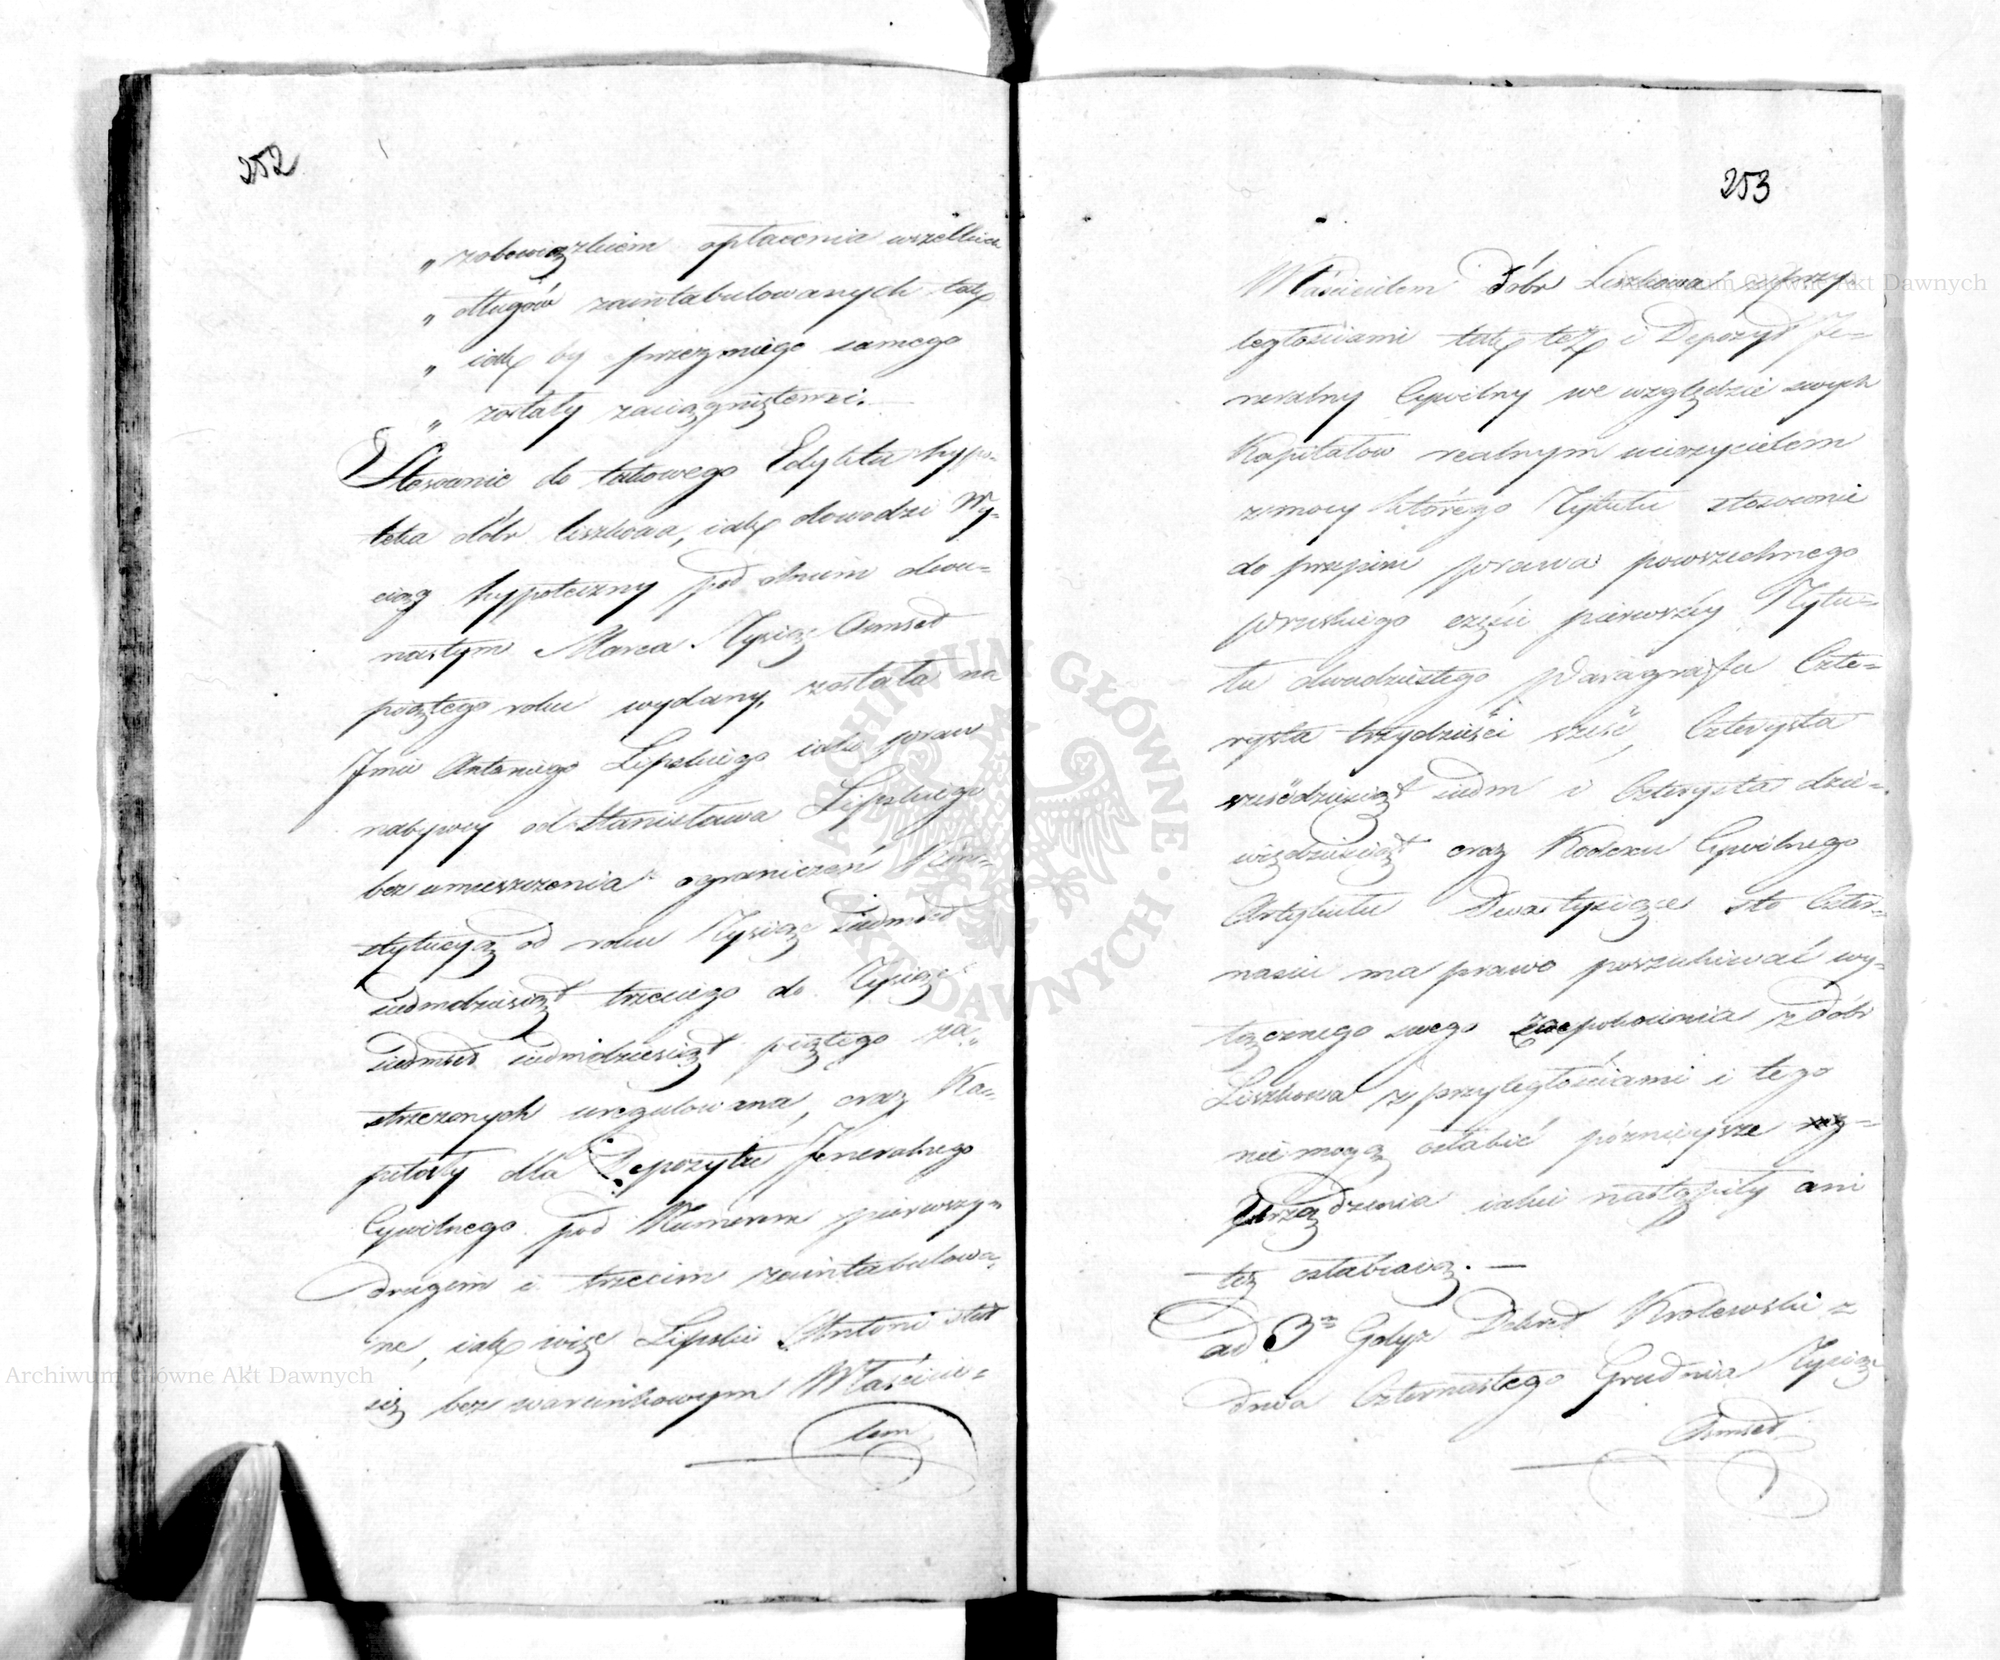 252
„ zobowiązkiem opłacenia wszelkich
„ długów zaintabulowanych tak
„ iak by przez niego samego
„ zostały zaciągnięteni.
Stosownie do takowego Edyktu hypo-
teka dóbr Liszkowa, iak dowodzi Wy-
ciąg hypoteczny pod dniem dwu-
nastym Marca Tysiąc Ośmset
piątego roku wydany, została na
Imie Antoniego Lipskiego iako praw
nabywcy od Stanisława Lipskiego
bez umieszczenia ograniczeń Kon-
stytucyą od roku Tysiąc Siedmset
siedmdziesiąt trzeciego do Tysiąc
Siedmset siedmdziesiąt piątego za-
strzeżonych uregulowana, oraz Ka-
pitały dla Depozytu Jeneralnego
Cywilnego pod Numerem pierwszym
drugim i trzecim zaintabulowa-
ne, iak więc Lipski Antoni stał
się bez warunkowym Właścicie-
lem
253
Właścicielem Dóbr Liszkowa z przy-
ległościami tak też i Depozyt Je-
neralny Cywilny we względzie swych
Kapitałow realnym wierzycielem
z mocy którego Tytułu stosownie
do przepisu prawa powszechnego
pruskiego części pierwszéy Tytu-
łu dwudziestego Paragrafu Czte-
rysta trzydzieści sześć, Czterysta
sześćdziesiąt siedm i Czterysta dzie-
więdziesiąt oraz Kodexu Cywilnego
Artykułu Dwa tysiące sto Czter-
naście ma prawo poszukiwać wy-
łącznego swego zaspokoienia z Dóbr
Liszkowa z przyległościami i tego
nie mogą osłabić póznieysze
urządzenia iakie nastąpiły ani
też osłabiaią. —
ad 3m Gdyż Dekret Krolewski z
dnia Czternastego Grudnia Tysiąc
Ośmset
Archiwum Główne Akt Dawnych
Archiwum Główne Akt Dawnych
ARCHIWUM GŁÓWNE AKT DAWNYCH